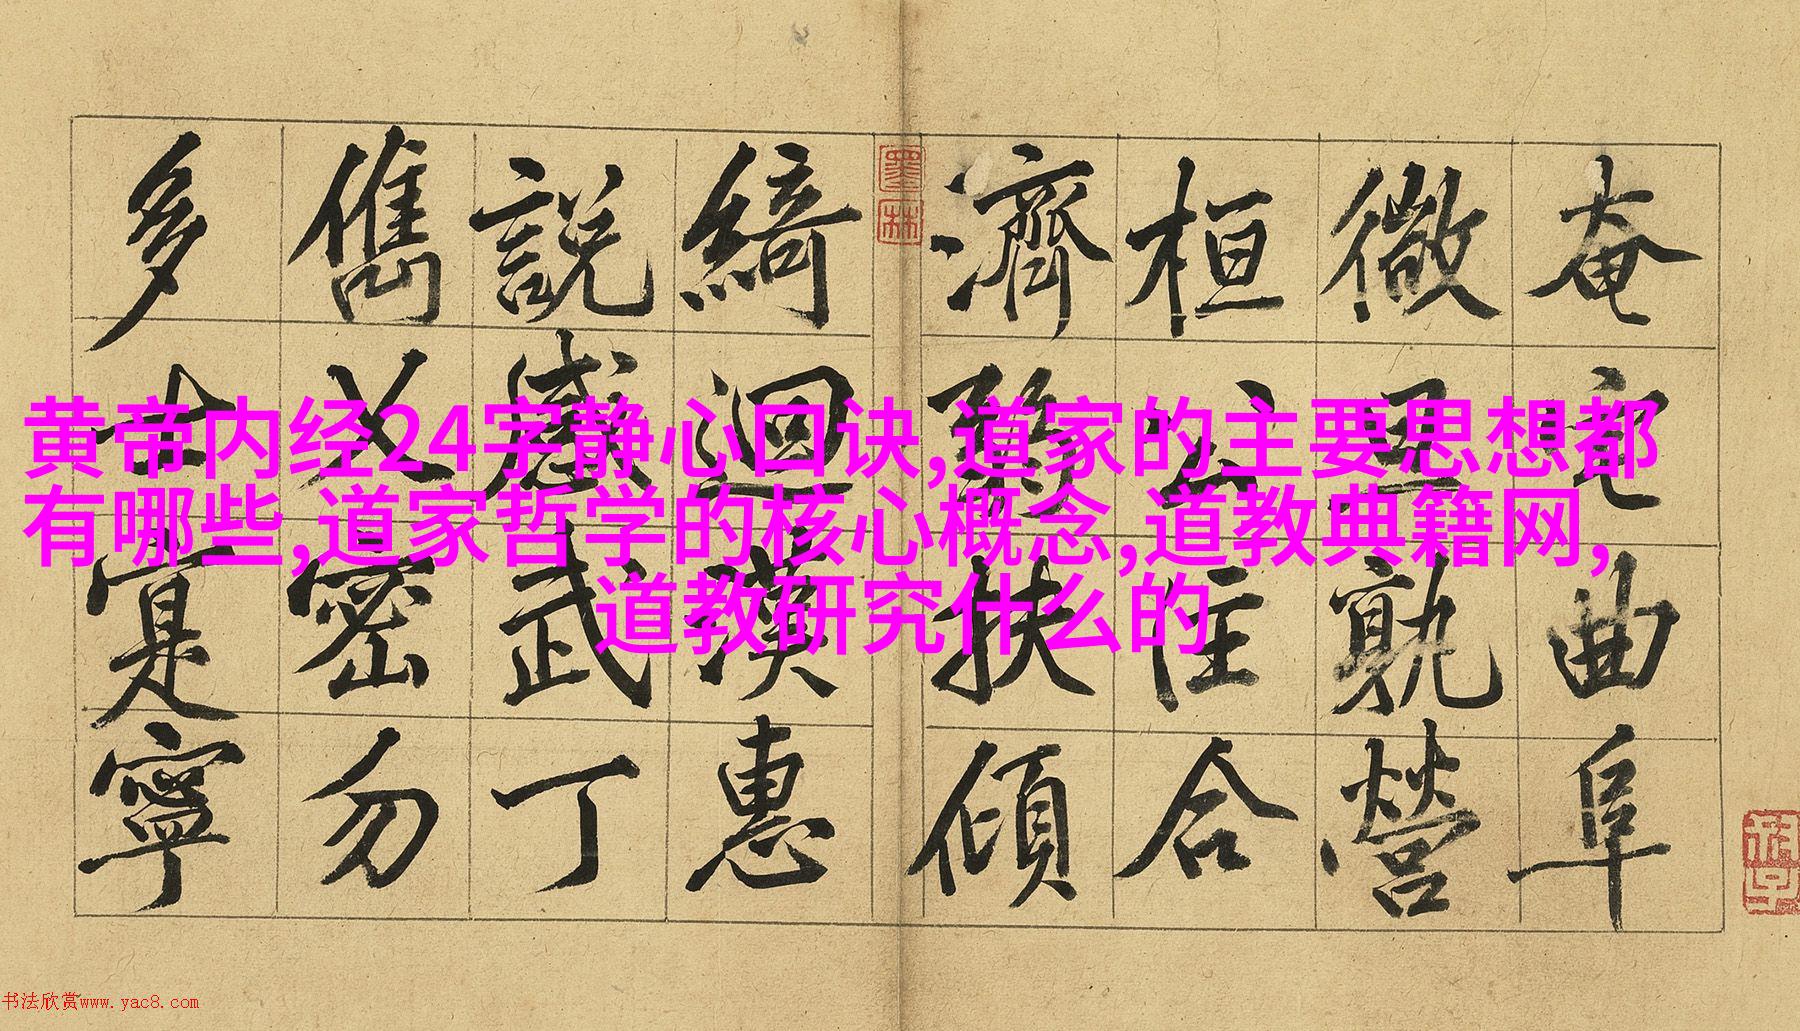 奄宅曲阜
微旦孰營
桓公匡合
濟弱扶傾
綺迴漢惠
說感武丁
儁乂密勿
多士寔寧
黄帝内经24字静心口诀,道家的主要思想都
有哪些,道家哲学的核心概念,道教典籍网,
道教研究什么的
书法欣赏www.yac8.com